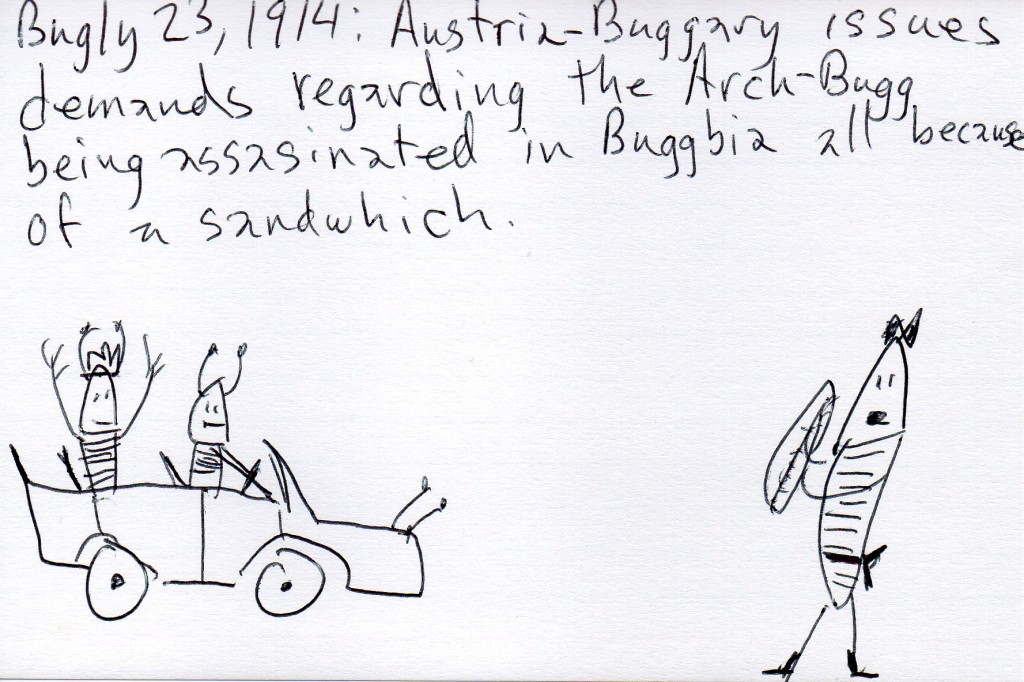 Bugly 23, 1914: Austria-Buggary issues
demands regarding the Arch-Bugg
being assasinated in Buggbia all because
of a sandwhich.